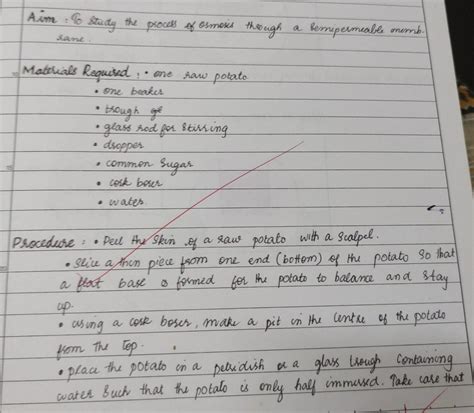 Aim : To study the process of osmosis through a semipermeable memb-
rane.
Materials Required : • one raw potato
• one beaker
• trough
• glass rod for stirring
• dropper
• common sugar
• cork borer
• water.
Procedure : • Peel the skin of a raw potato with a scalpel.
• Slice a thin piece from one end (bottom) of the potato so that
a flat base is formed for the potato to balance and stay
up.
• using a cork borer, make a pit in the centre of the potato
from the top.
• place the potato in a petridish or a glass trough containing
water such that the potato is only half immersed. Take care that